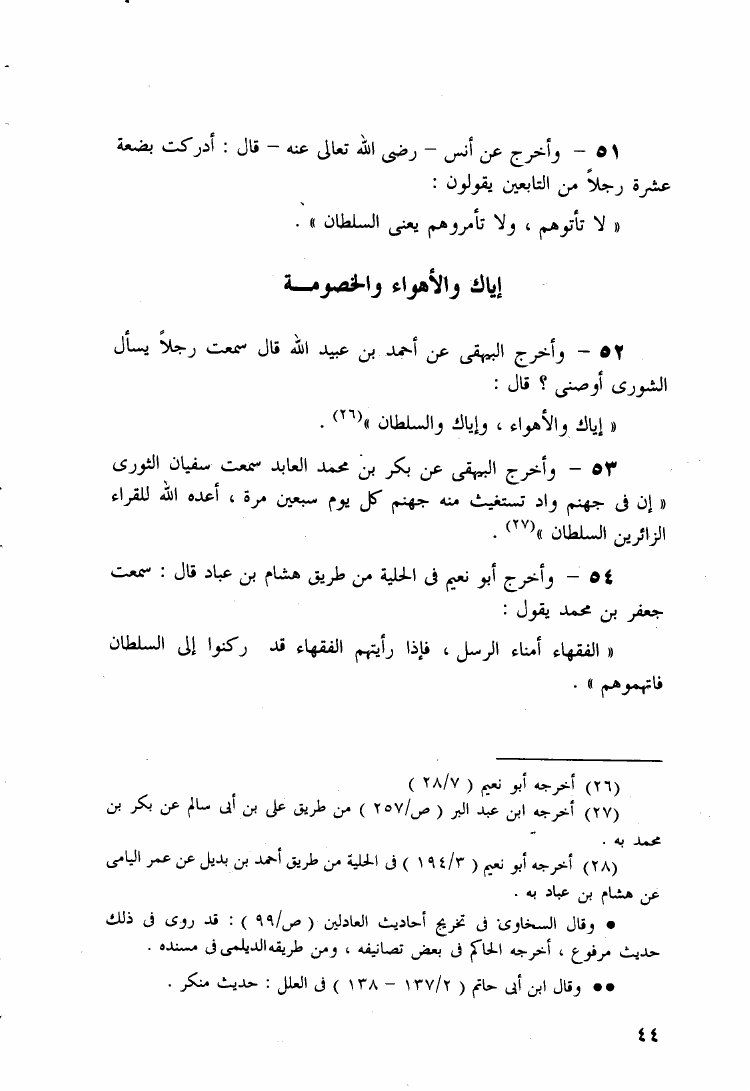 ٥١ – وأخرج عن أنس – رضى الله تعالى عنه – قال : أدركت بضعة
عشرة رجلاً من التابعين يقولون :
« لا تأتوهم ، ولا تأمروهم يعنى السلطان » .
إياك والأهواء والخصومــة
٥٢ – وأخرج البيهقى عن أحمد بن عبيد الله قال سمعت رجلاً يسأل
الشورى أوصنى ؟ قال :
« إياك والأهواء ، وإياك والسلطان »(٢٦) .
٥٣ – وأخرج البيهقى عن بكر بن محمد العابد سمعت سفيان الثورى
« إن فى جهنم واد تستغيث منه جهنم كل يوم سبعين مرة ، أعده الله للقراء
الزائرين السلطان »(٢٧) .
٥٤ – وأخرج أبو نعيم فى الحلية من طريق هشام بن عباد قال : سمعت
جعفر بن محمد يقول :
« الفقهاء أمناء الرسل ، فإذا رأيتهم الفقهاء قد ركنوا إلى السلطان
فاتهموهم » .
(٢٦) أخرجه أبو نعيم ( ٢٨/٧ )
(٢٧) أخرجه ابن عبد البر ( ص/٢٥٧ ) من طريق على بن أبى سالم عن بكر بن
محمد به .
(٢٨) أخرجه أبو نعيم ( ١٩٤/٣ ) فى الحلية من طريق أحمد بن بديل عن عمر اليامى
عن هشام بن عباد به .
● وقال السخاوى فى تخريج أحاديث العادلين ( ص/٩٩ ) : قد روى فى ذلك
حديث مرفوع ، أخرجه الحاكم فى بعض تصانيفه ، ومن طريقه الديلمى فى مسنده .
●● وقال ابن أبى حاتم ( ١٣٧/٢ – ١٣٨ ) فى العلل : حديث منكر .
٤٤